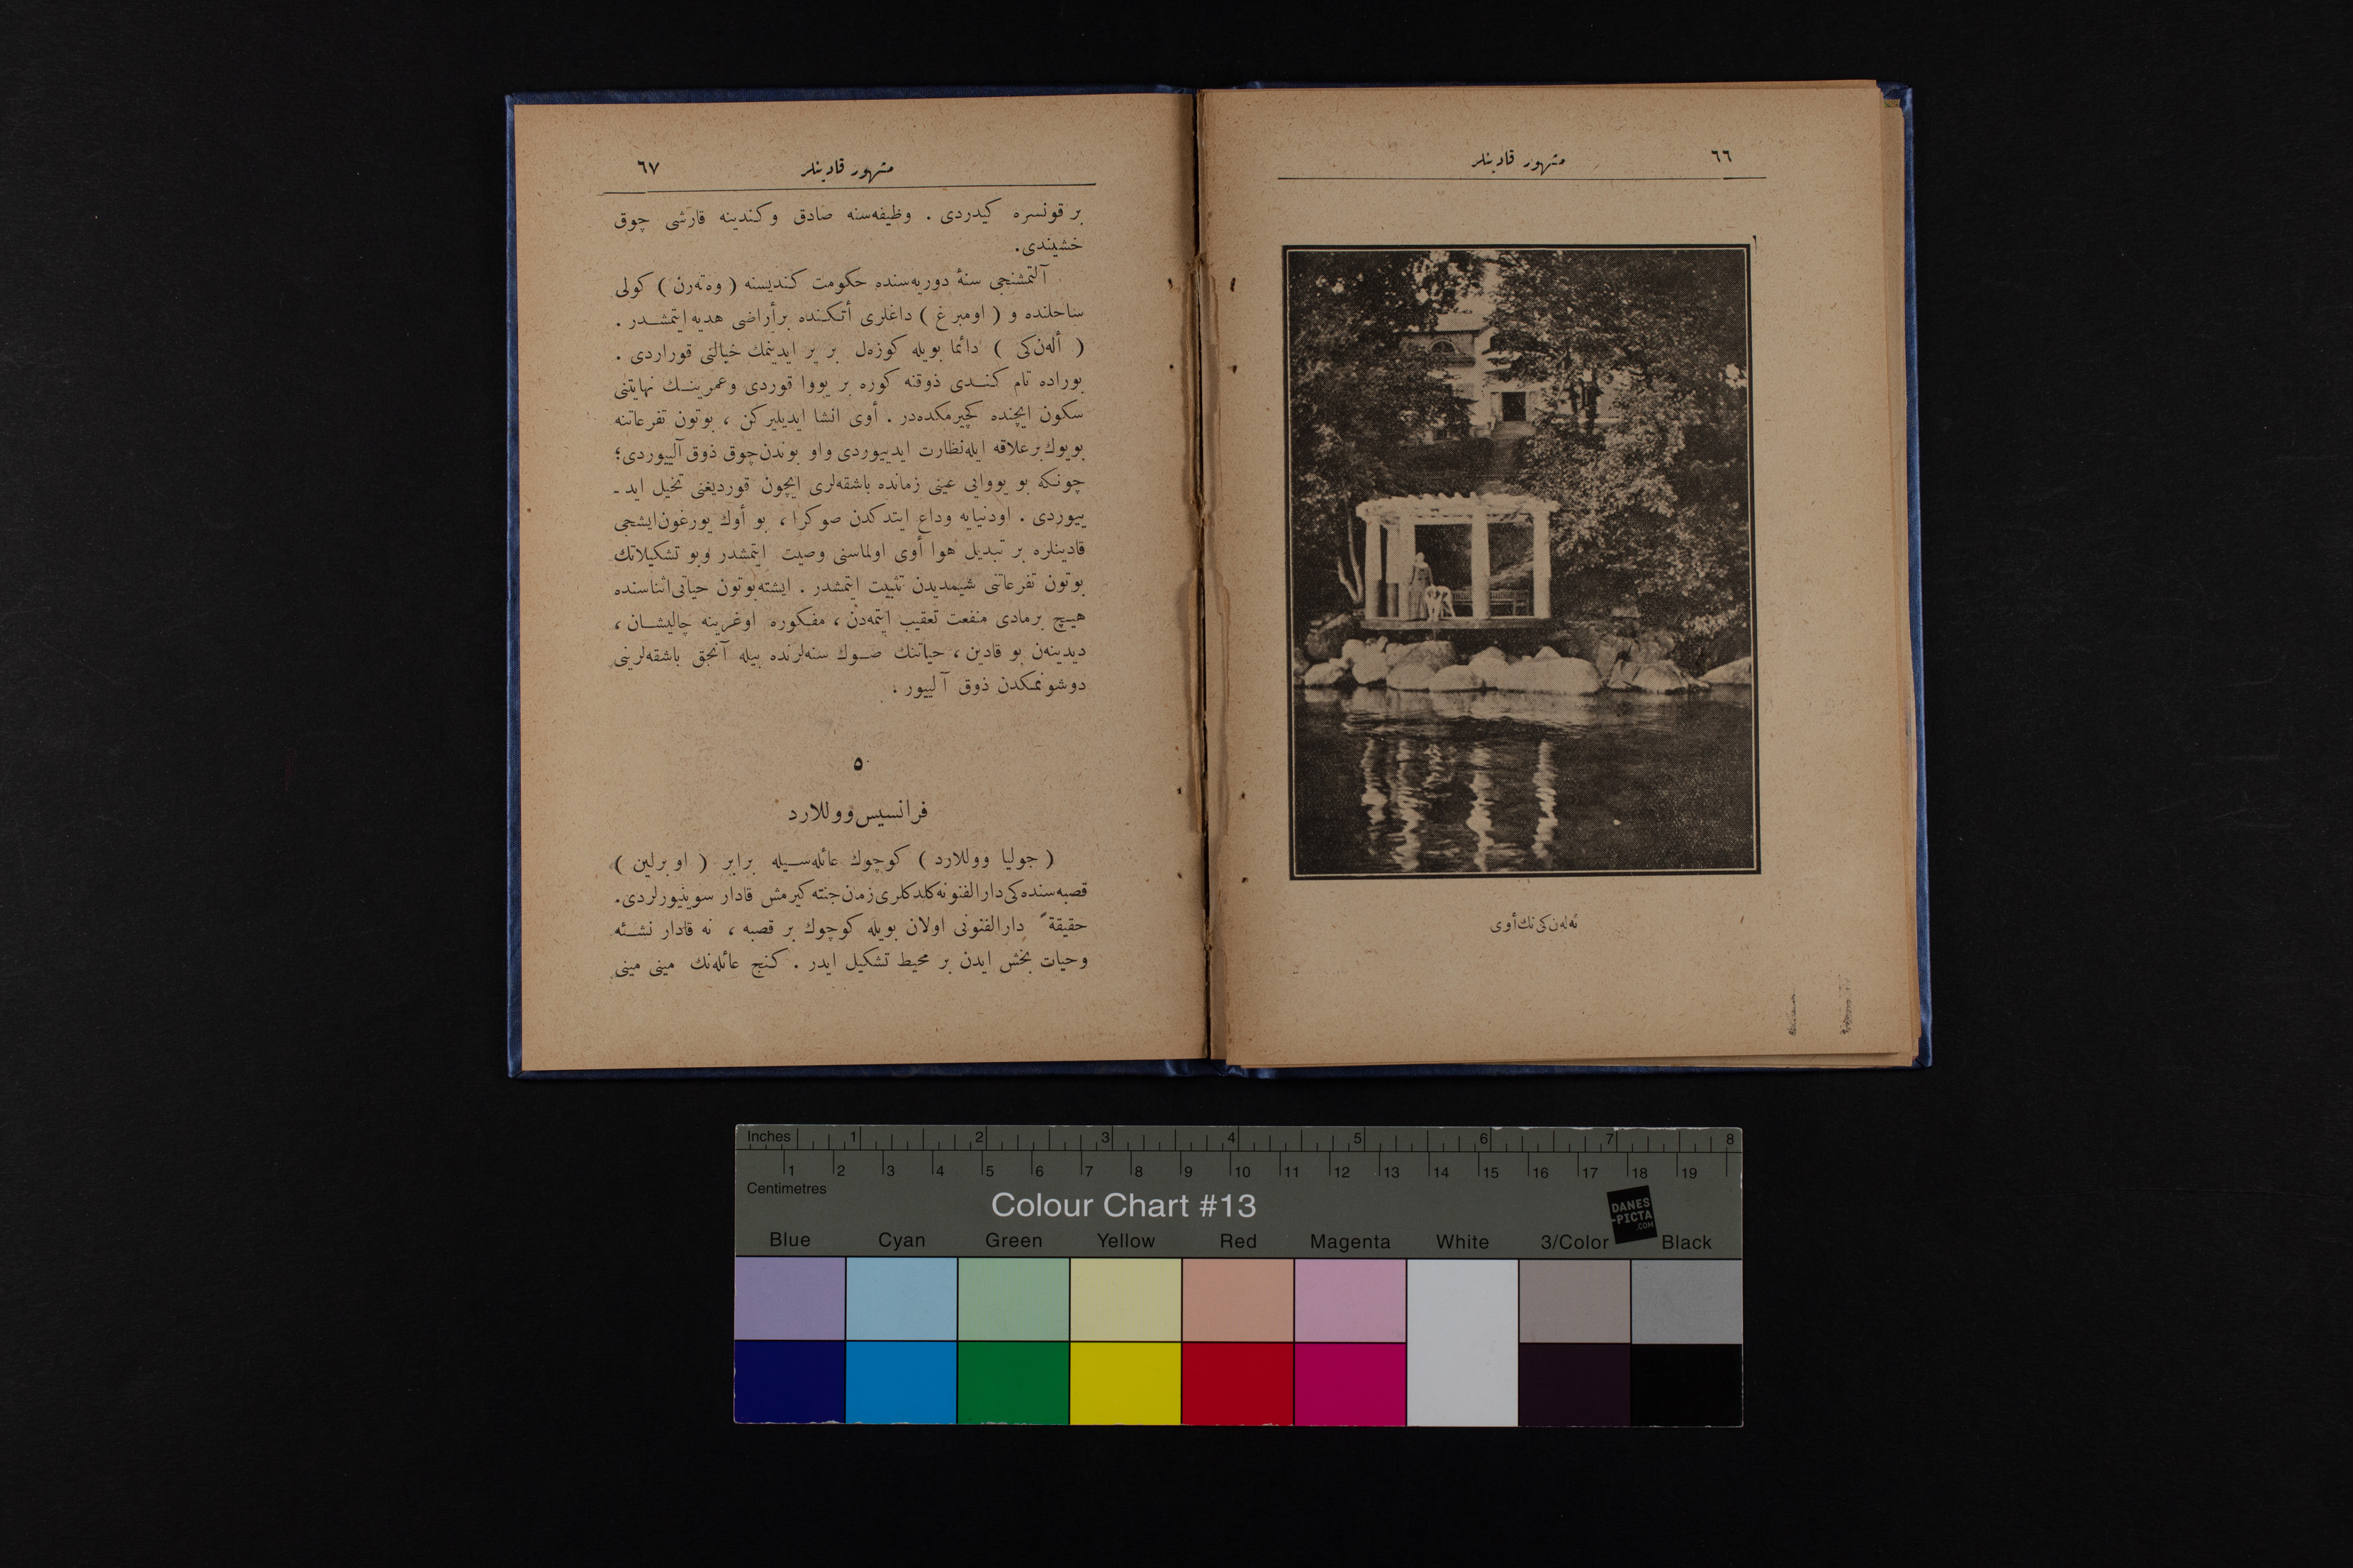 ٦٦
مشهور قادینلر
ئه‌له‌ن کی نك أوی
مشهور قادینلر
٦٧
بر قونسره کیدردی . وظیفه‌سنه صادق و کندینه قارشی چوق
خشیندی.
آلتمشنجی سنهٔ دوریه‌سنده حکومت کندیسنه ( وه‌ته‌رن ) کولی
ساحلنده و ( اومبرغ ) داغلری أتکنده برأراضی هدیه ایتمشدر .
( أله‌ن‌کی ) دائما بویله کوزه‌ل بر یر ایدینمك خیالنی قوراردی .
بوراده تام کندی ذوقنه کوره بر یووا قوردی وعمرینك نهایتنی
سکون ایچنده کچیرمکده‌در . أوی انشا ایدیلیرکن ، بوتون تفرعاتنه
بویوك برعلاقه ایله نظارت ایدییوردی واو بوندن چوق ذوق آلییوردی؛
چونکه بو یووایی عینی زمانده باشقه‌لری ایچون قوردیغنی تخیل اید -
ییوردی . اودنیایه وداع ایتدکدن صوکرا ، بو أوك یورغون ایشجی
قادینلره بر تبدیل هوا أوی اولماسنی وصیت ایتمشدر وبو تشکیلاتك
بوتون تفرعاتنی شیمدیدن تثبیت ایتمشدر . ایشته بوتون حیاتی اثناسنده
هیچ برمادی منفعت تعقیب ایتمه‌دن ، مفکوره اوغرینه چالیشان ،
دیدینه‌ن بو قادین ، حیاتنك صوك سنه‌لرنده بیله آنجق باشقه‌لرینی
دوشونمکدن ذوق آلییور .
٥
فرانسیس ووللارد
( جولیا ووللارد ) کوچوك عائله‌سیله برابر ( اوبرلین )
قصبه‌سنده‌کی دارالفنونه کلدکلری زمان جنته کیرمش قادار سوینیورلردی.
حقیقةً دارالفنونی اولان بویله کوچوك بر قصبه ، نه قادار نشئه
وحیات بخش ایدن بر محیط تشکیل ایدر . کنج عائله‌نك مینی مینی
Inches 1 2 3 4 5 6 7 8
1 2 3 4 5 6 7 8 9 10 11 12 13 14 15 16 17 18 19
Centimetres
Colour Chart #13
DANES
-PICTA
.COM
Blue Cyan Green Yellow Red Magenta White 3/Color Black